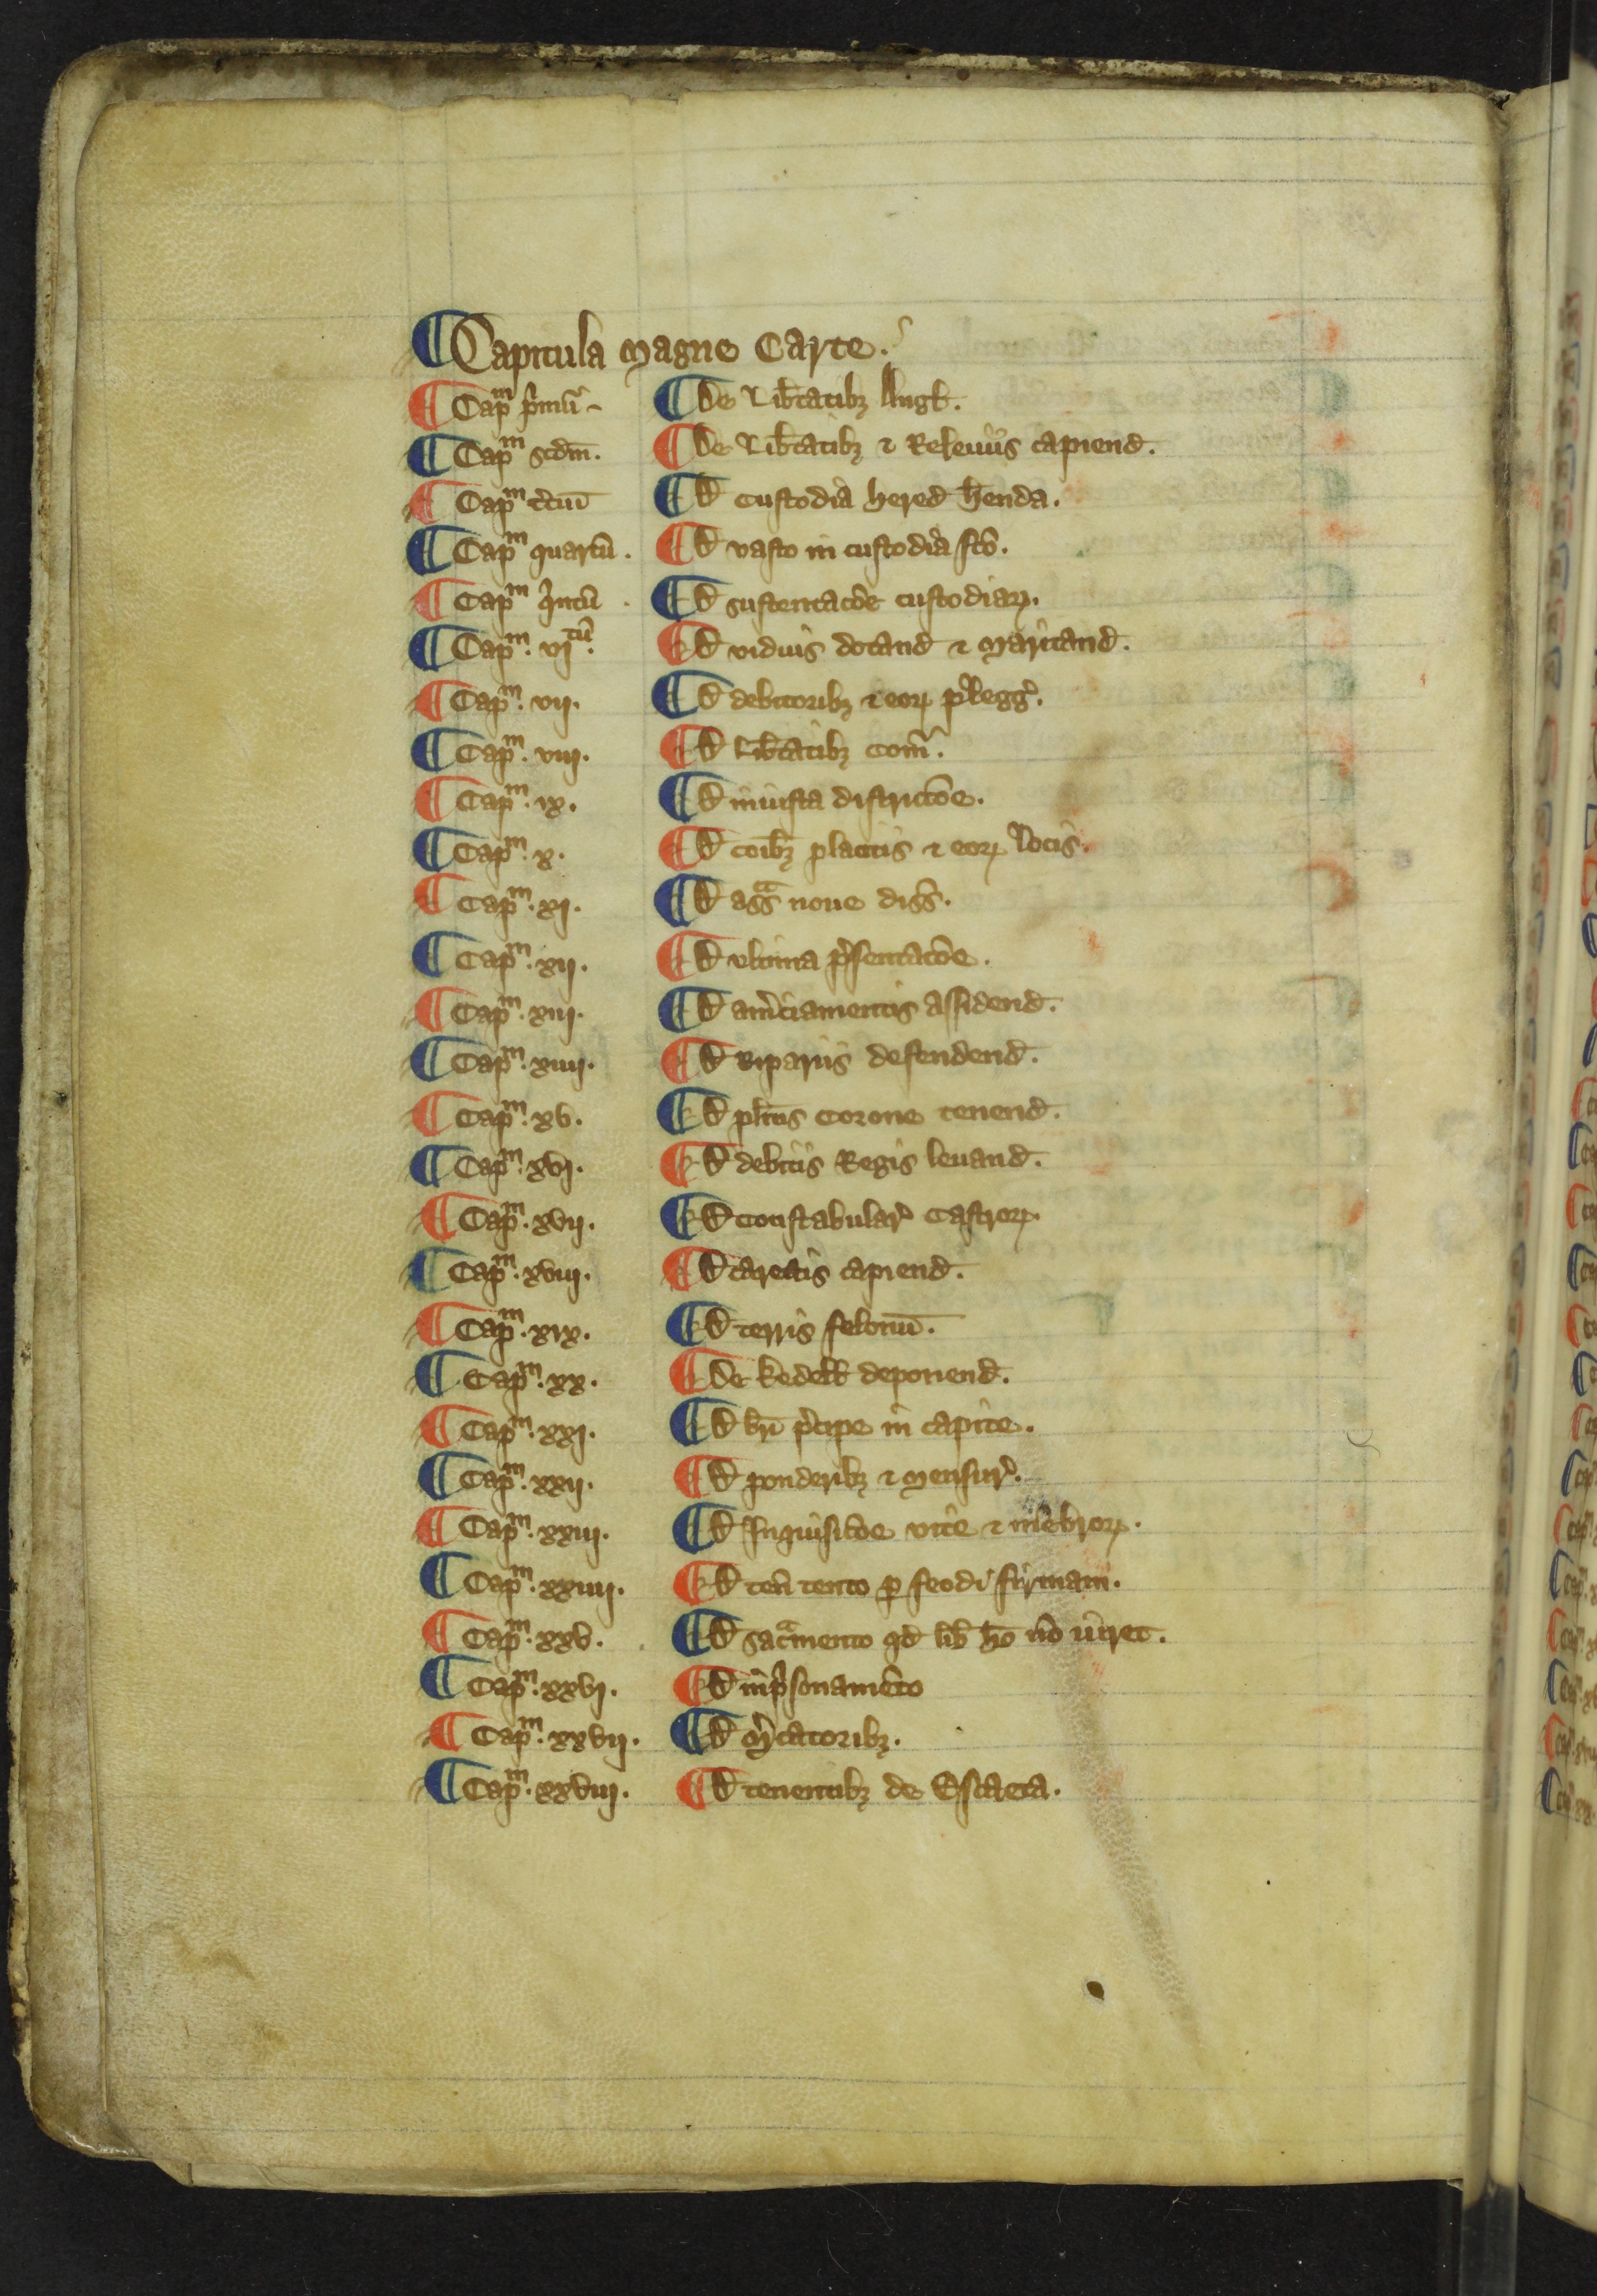 ¶ Capitula magne Carte.
¶ Capᵐ p̾mū ¶ De Lib̄tatibꝫ Angł.
¶ Capᵐ scdm̄. ¶ De Lib̄tatibꝫ ⁊ Releuiis capiend̄.
¶ Capᵐ t̾ciū ¶ D̄ custodia hered̄ h̄enda.
¶ Capᵐ quartū. ¶ D̄ vasto in custodia fc̄o.
¶ Capᵐ qⁱntū. ¶ D̄ sustentac̄oe custodiaꝝ.
¶ Capᵐ. vjᵗū. ¶ D̄ viduis dotand̄ ⁊ maritand̄.
¶ Capᵐ. vij. ¶ D̄ debitoribꝫ ⁊ eoꝝ plegg̾.
¶ Capᵐ. viij. ¶ D̄ Lib̄tatibꝫ com̄.
¶ Capᵐ. ix. ¶ D̄ iniusta districc̄oe.
¶ Capᵐ. x. ¶ D̄ coībꝫ placitis ⁊ eoꝝ locis.
¶ Capᵐ. xj. ¶ D̄ assᵃ noue diss̄.
¶ Capᵐ. xij. ¶ D̄ vltima p̾sentac̄oe.
¶ Capᵐ. xiij. ¶ D̄ am̾ciamentis assidend̄.
¶ Capᵐ. xiiij. ¶ D̄ Ripariis defendend̄.
¶ Capᵐ. xv. ¶ D̄ plitis Corone tenend̄.
¶ Capᵐ. xvj. ¶ D̄ debitis Regis leuand̄.
¶ Capᵐ. xvij. ¶ D̄ Constabular̾ Castroꝝ.
¶ Capᵐ. xviij. ¶ D̄ carectis capiend̄.
¶ Capᵐ. xix. ¶ D̄ terris felonū.
¶ Capᵐ. xx. ¶ De kedełł deponend̄.
¶ Capᵐ. xxj. ¶ D̄ br̄i p̾cipe in capite.
¶ Capᵐ. xxij. ¶ D̄ ponderibꝫ ⁊ mensur̾.
¶ Capᵐ. xxiij. ¶ D̄ Inquisic̄oe vite ⁊ mēbroꝝ.
¶ Capᵐ. xxiiij. ¶ D̄ ten̄ tento ꝑ feodi firmam.
¶ Capᵐ. xxv. ¶ D̄ sacᵃmento qd̄ lib̄ ho nō iuret.
¶ Capᵐ. xxvj. ¶ D̄ inpⁱsonamēto
¶ Capᵐ. xxvij. ¶ D̄ m̾catoribꝫ.
¶ Capᵐ. xxviij. ¶ D̄ tenentibꝫ de Escaeta.